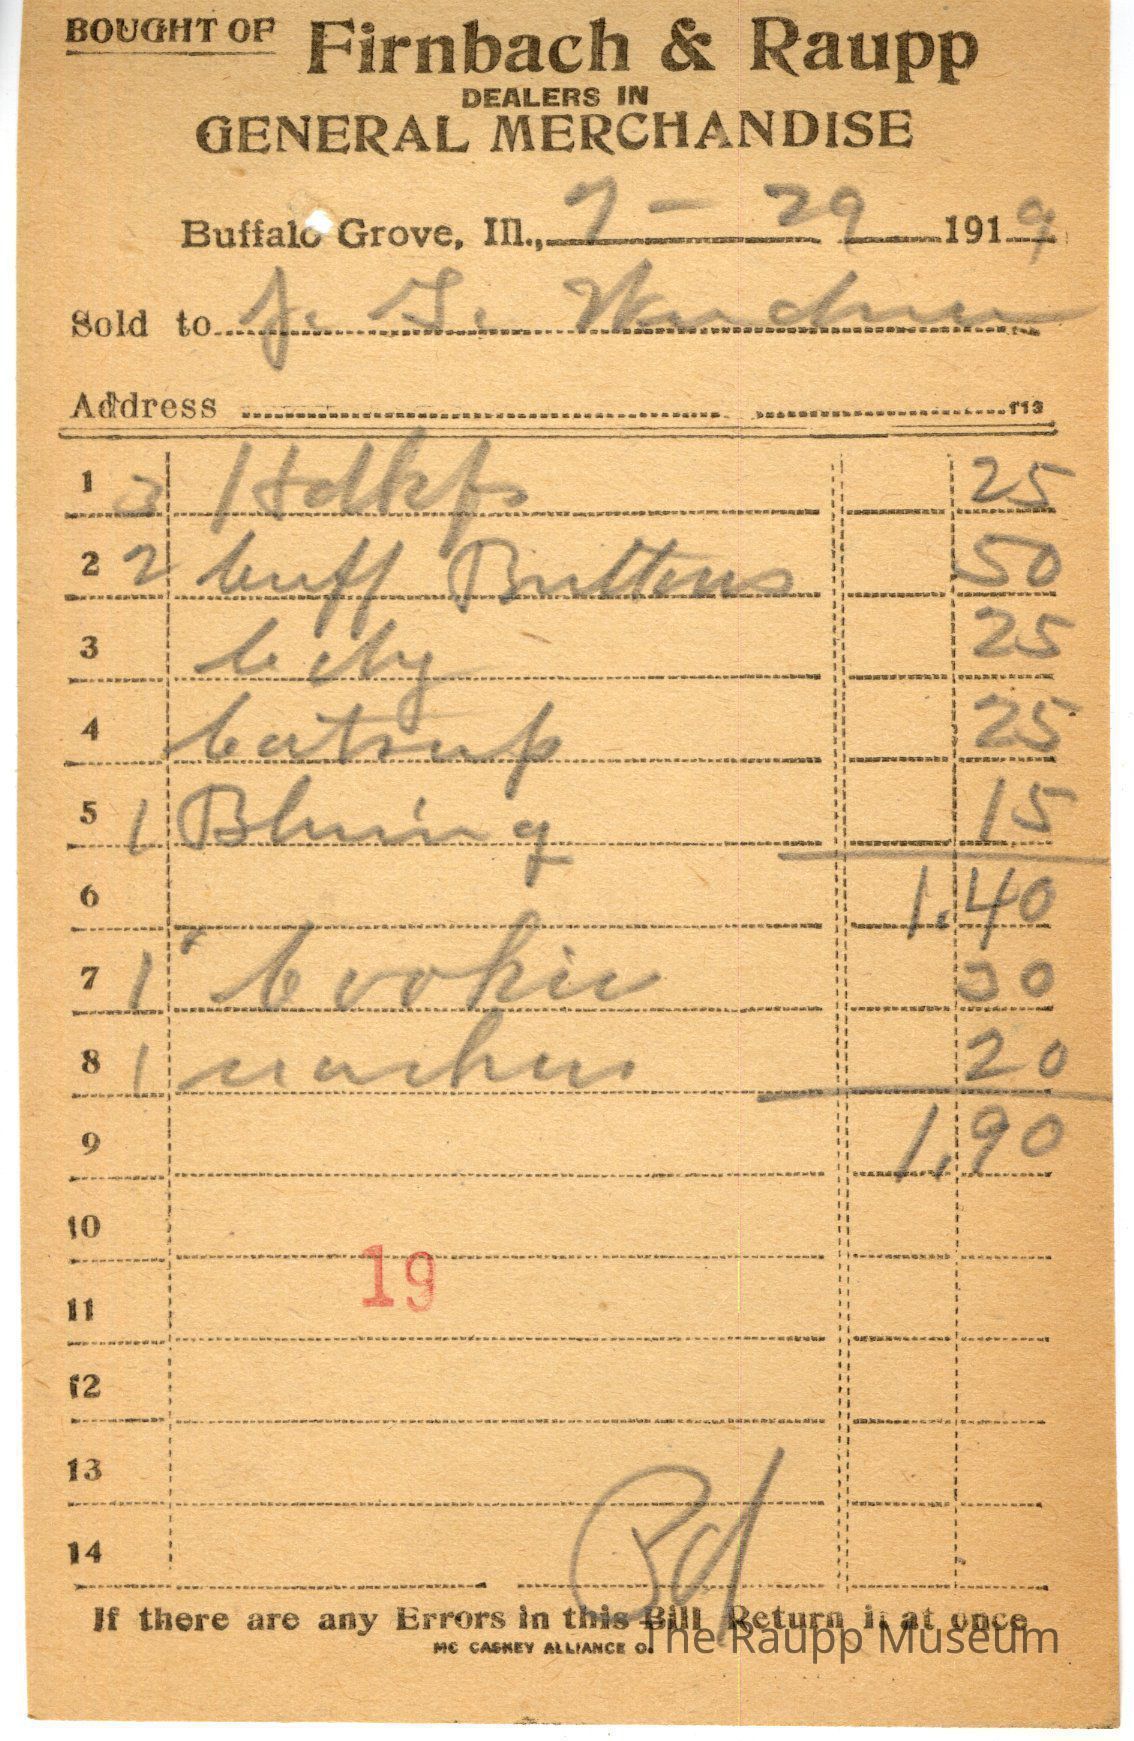 BOUGHT OF Firnbach & Raupp
DEALERS IN
GENERAL MERCHANDISE
Buffalo Grove, Ill., 7 - 29 1919
Sold to J. G.
Address 113
1 3 Hdkfs 25
2 2 Cuff Buttons 50
3 25
4 Catsup 25
5 1 Bluing 15
6 1.40
7 1 Cookie 30
8 1 crackers 20
9 1.90
10
19
11
12
13
14
Pd
If there are any Errors in this Bill Return it at once
MC CASKEY ALLIANCE O.
The Raupp Museum